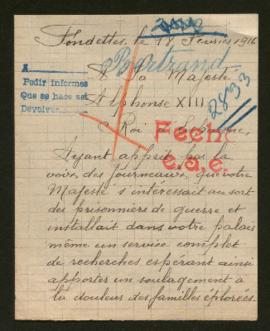 Fondettes, le 18 Février 1916
Bertrand
A
Pedir informes
Que se hace sea
Devolver
A Sa Majesté
Alphonse XIII
Roi
2833
Fecho
c.a.c.
Ayant appris par la
voix des journeaux que votre
Majesté s'intéressait au sort
des prisonniers de guerre et
installait dans votre palais
même un service complet
de recherches espérant ainsi
apporter un soulagement à
la douleur des familles éplorées.